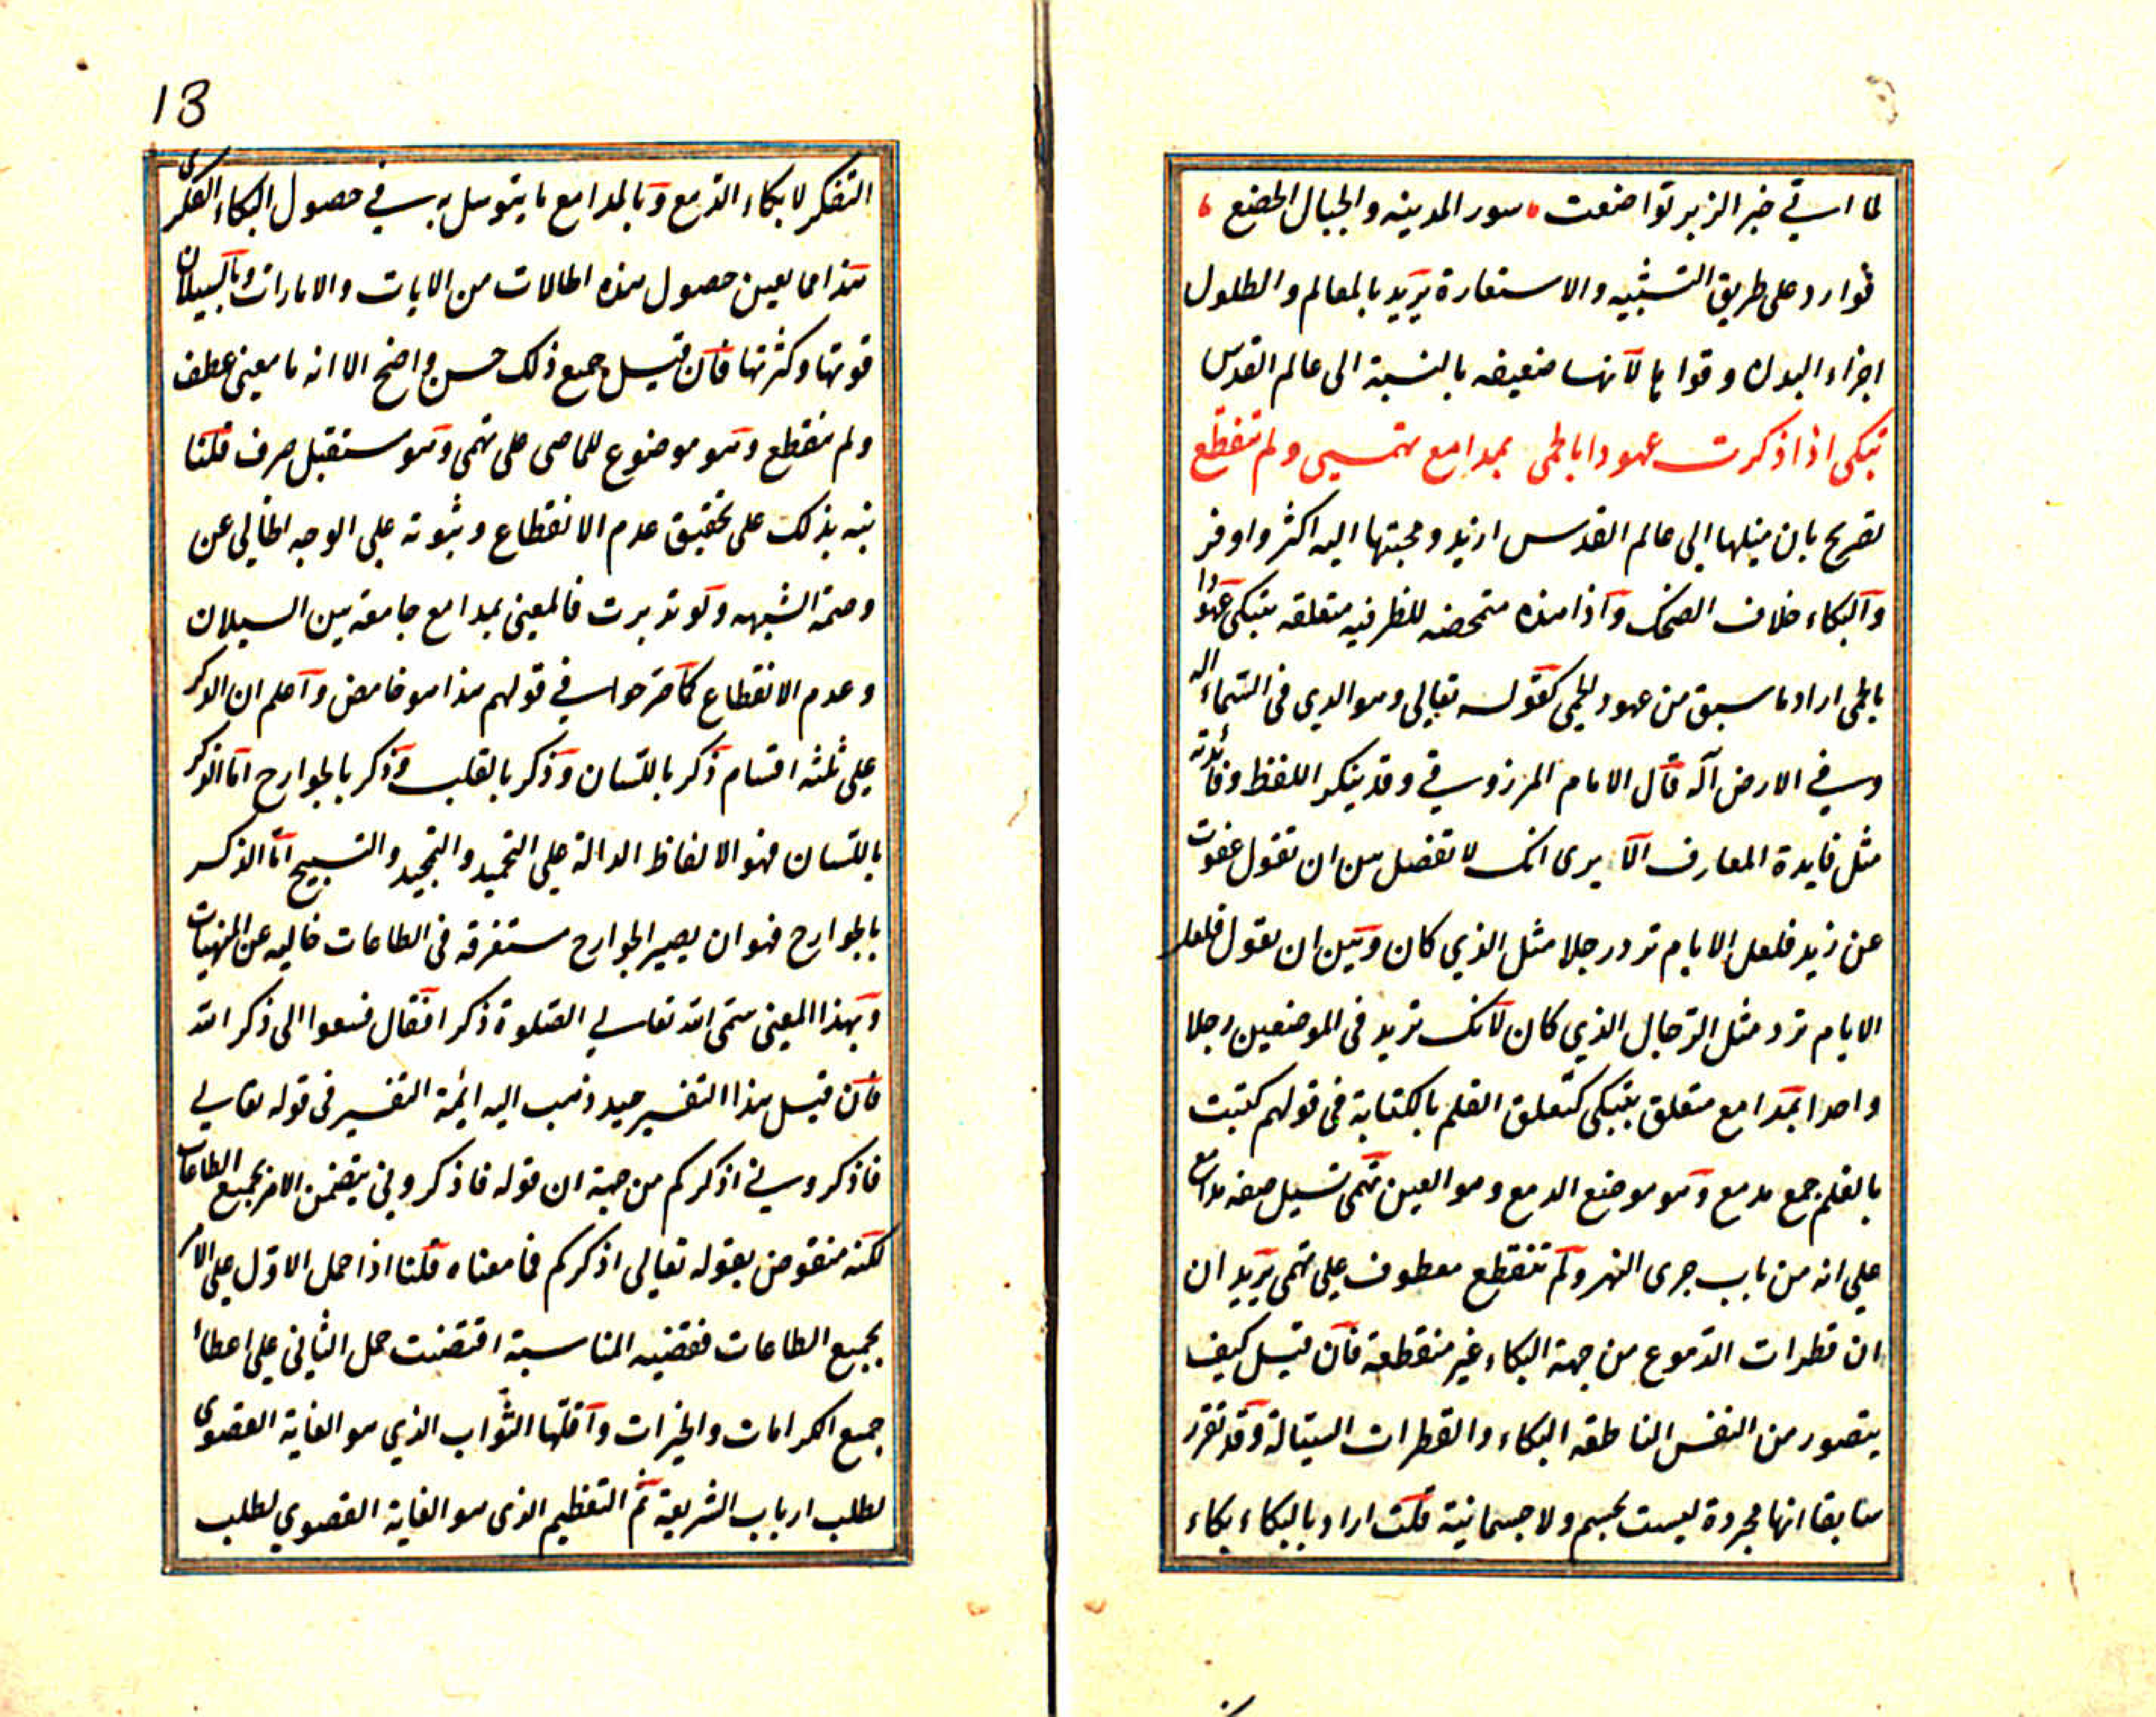 لما اتي خبر الزبير تواضعت ، سور المدينه والجبال الخضع ،
فوارد على طريق التشبيه والاستعارة يريد بالمعالم والطلول
اجزاء البدن وقواها لانها ضعيفه بالنسبة الى عالم القدس
تبكى اذا ذكرت عهودا بالحمى بمدامع تهمى ولم تنقطع
تصريح بان ميلها الى عالم القدس ازيد ومحبتها اليه اكثر واوفر
والبكاء خلاف الضحك واذا هذه متمحضه للظرفيه متعلقه بتبكى عهودا
بالحمى اراد ما سبق من عهود الحمى كقوله تعالى وهو الذى فى السماء اله
وفي الارض اله قال الامام المرزوقي وقد ينكر اللفظ وفائدته
مثل فايدة المعارف الا يرى انك لا تفصل بين ان تقول عفوت
عن زيد فلعل الايام ترد رجلا مثل الذي كان وبين ان تقول فلعل
الايام ترد مثل الرجال الذي كان لانك تريد فى الموضعين رجلا
واحدا بمدامع متعلق بتبكى كتعلق القلم بالكتابة فى قولهم كتبت
بالقلم جمع مدمع وهو موضع الدمع وهو العين تهمى تسيل صفه مدامع
على انه من باب جرى النهر ولم تنقطع معطوف على تهمى يريد ان
ان قطرات الدموع من جهة البكاء غير منقطعة فان قيل كيف
يتصور من النفس الناطقه البكاء والقطرات السيالة وقد تقرر
سابقا انها مجردة ليست بجسم ولا جسمانية قلت اراد بالبكاء بكاء
13
التفكر لا بكاء الدمع وبالمدامع ما يتوسل به في حصول البكاء الفكرى
هذا مما يعين حصول هذه الحالات من الايات والامارات وبالسيلان
قوتها وكثرتها فان قيل جميع ذلك حسن واضح الا انه ما معنى عطف
ولم تنقطع وهو موضوع للماضى على تهمى وهو مستقبل صرف قلنا
نبه بذلك على تحقيق عدم الانقطاع وثبوته على الوجه الخالي عن
وصمة الشبهه ولو تدبرت فالمعنى بمدامع جامعة بين السيلان
وعدم الانقطاع كما صرحوا في قولهم هذا هو غامض واعلم ان الذكر
على ثلثه اقسام ذكر باللسان وذكر بالقلب وذكر بالجوارح اما الذكر
باللسان فهو الالفاظ الدالة على التحميد والتمجيد والتسبيح اما الذكر
بالجوارح فهو ان يصير الجوارح مستغرقه فى الطاعات خاليه عن المنهيات
وبهذا المعنى سمى الله تعالي الصلوة ذكرا فقال فسعوا الى ذكر الله
فان قيل هذا التفسير جيد ذهب اليه ائمة التفسير فى قوله تعالي
فاذكروني اذكركم من جهة ان قوله فاذكروني يتضمن الامر بجميع الطاعات
لكنه منقوض بقوله تعالى اذكركم فما معناه قلنا اذا حمل الاول على الامر
بجميع الطاعات فقضيه المناسبة اقتضت حمل الثاني على اعطاء
جميع الكرامات والخيرات واقلها الثواب الذي هو الغاية القصوى
لطلب ارباب الشريعة ثم التعظيم الذى هو الغاية القصوي لطلب